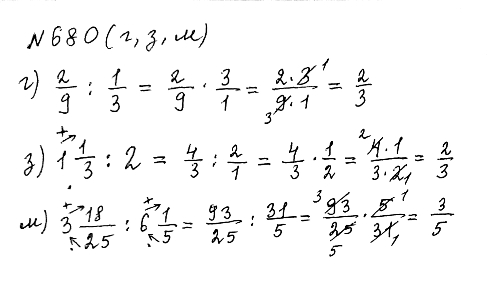 №680 (г, з, м)
г) 2/9 : 1/3 = 2/9 · 3/1 = 2·3 1/3 9·1 = 2/3
з) 1 1/3 : 2 = 4/3 : 2/1 = 4/3 · 1/2 = 2 4·1/3·2 1 = 2/3
м) 3 18/25 : 6 1/5 = 93/25 : 31/5 = 3 93/25 5 · 5 1/31 1 = 3/5